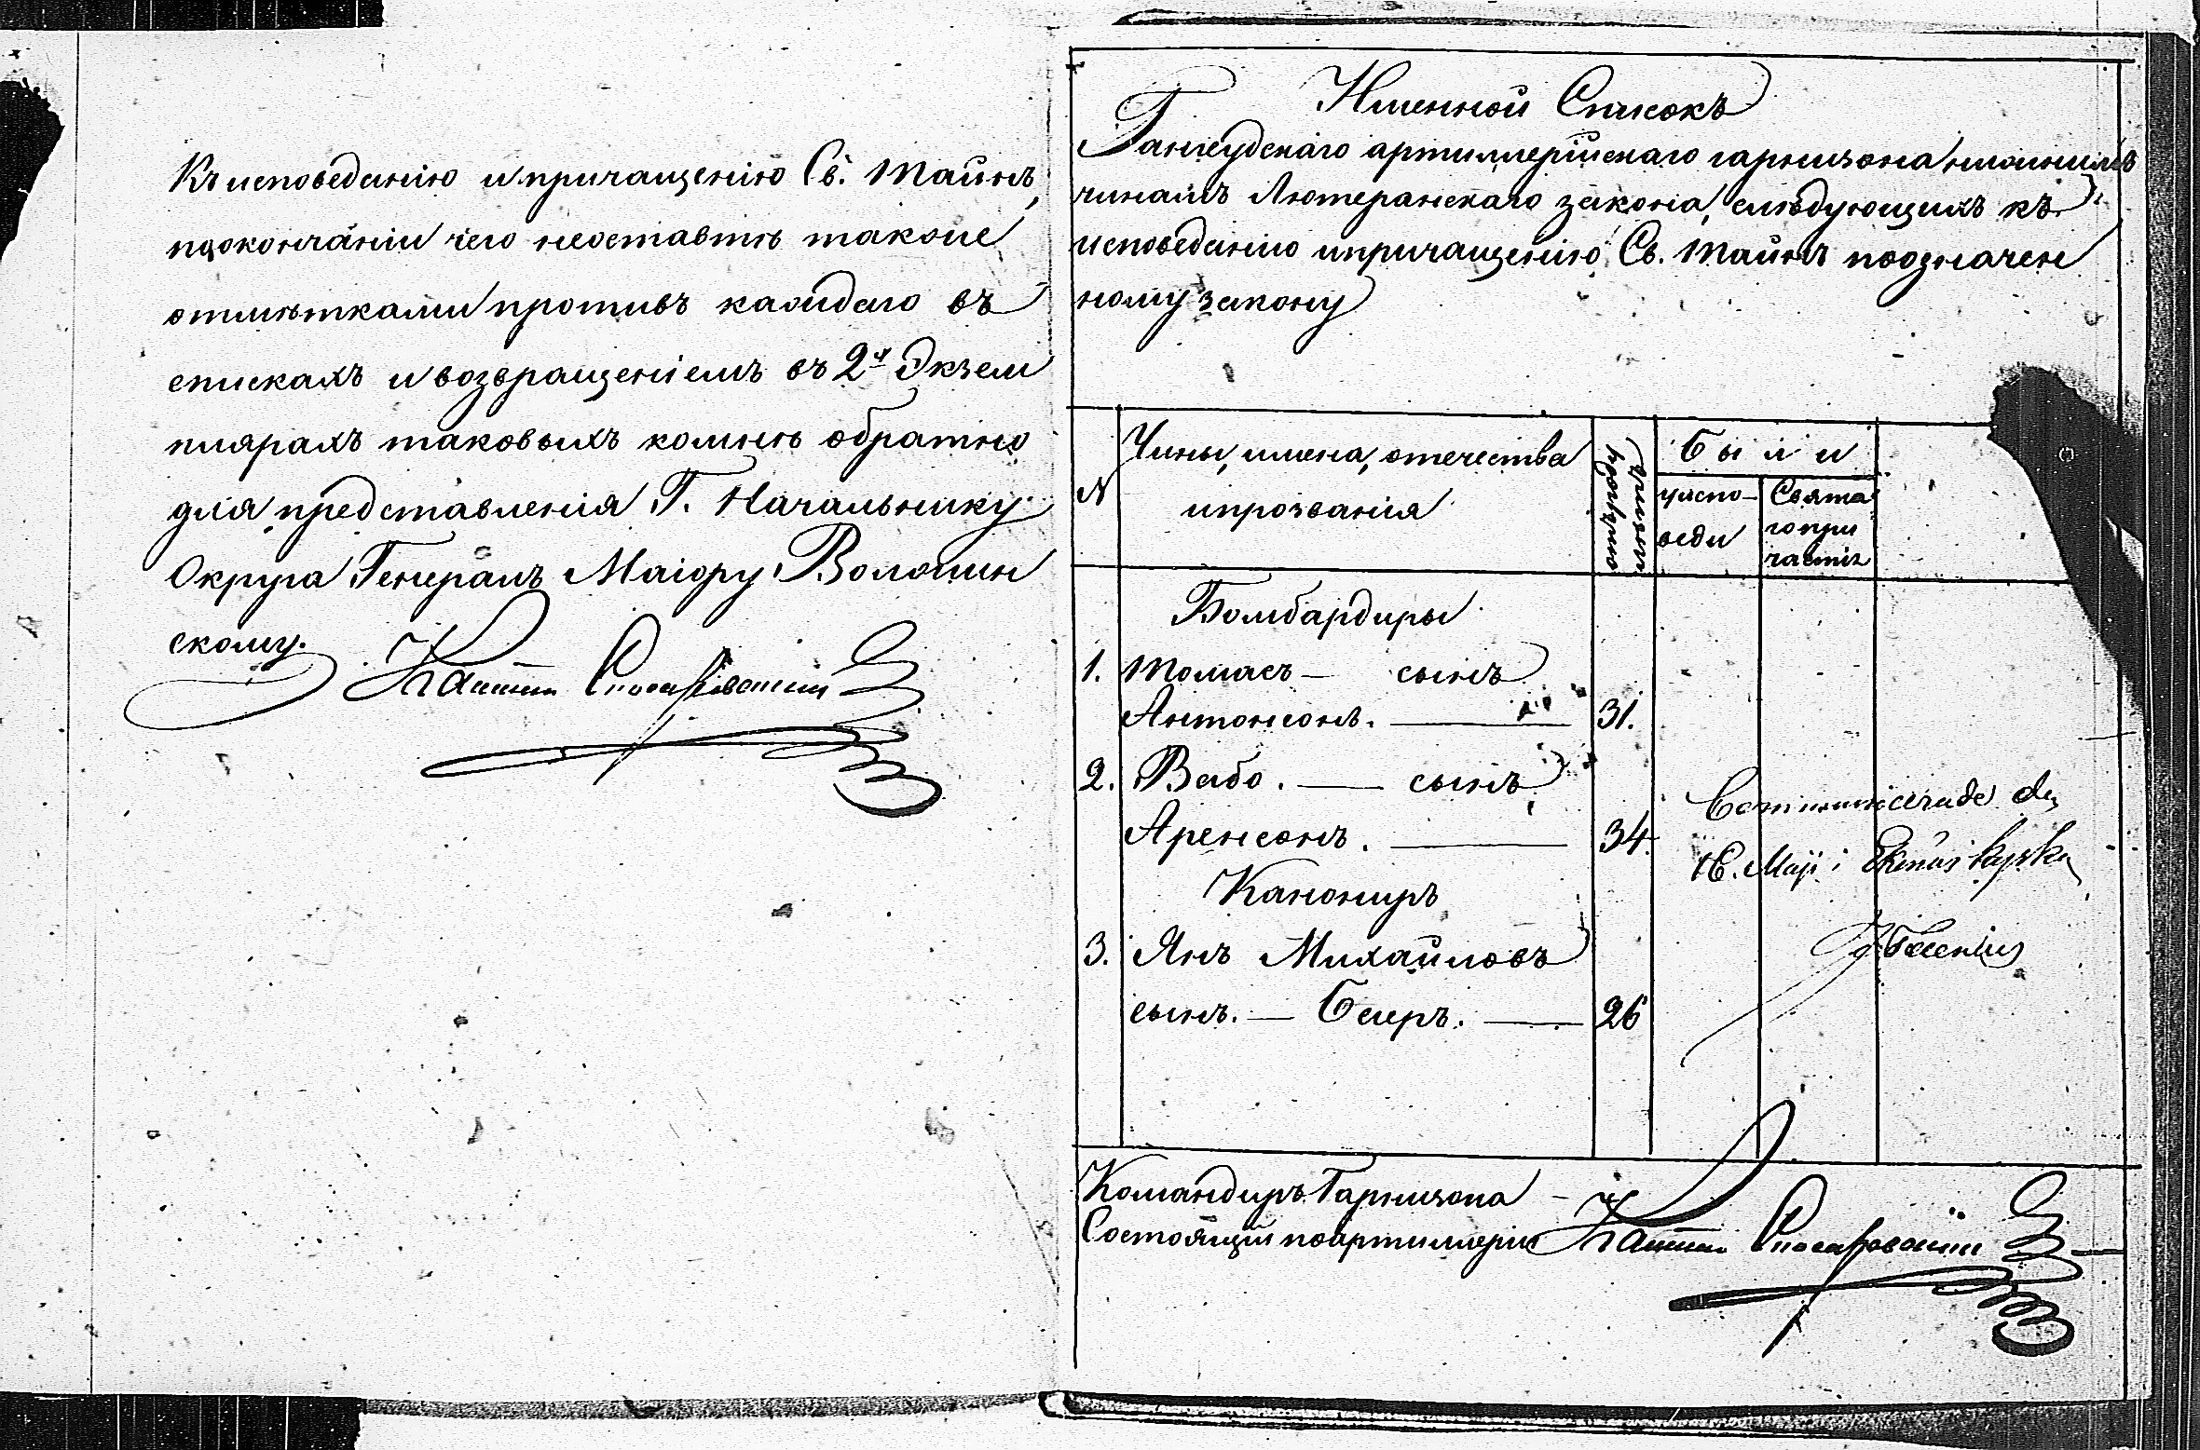 Къ исповеданію и причащенію Св. Таинъ,
по окончаніи чего неоставить таковые
отмѣтками противъ каждаго въ
спискахъ и возвращеніемъ въ 2хъ Экзем
плярахъ таковыхъ комнѣ обратно
для представленія Г. Начальнику
Округа Генералъ Маіору Волошин
скому.
Капитан
Именной Списокъ
Гангеудскаго артиллерійскаго гарнизона нижнимъ
чинамъ Лютеранскаго закона, слѣдующихъ къ
исповеданію и причащенію Св. Таинъ по означен
ному закону
N
Чины, имена, отечества
и прозванія
Были
у испо-
веди
Свята
го при
частія
Бомбардиры
1. Томасъ — сынъ
Антонсонъ. 31.
2. Вабо. — сынъ
Аренсонъ. 34.
Канониръ
3. Янъ Михайловъ
сынъ. — Беиръ. 26
Communicerade d.
16. Maji i Ekenäs kyrka
Командиръ Гарнизона
Состоящій по артиллеріи Капитан